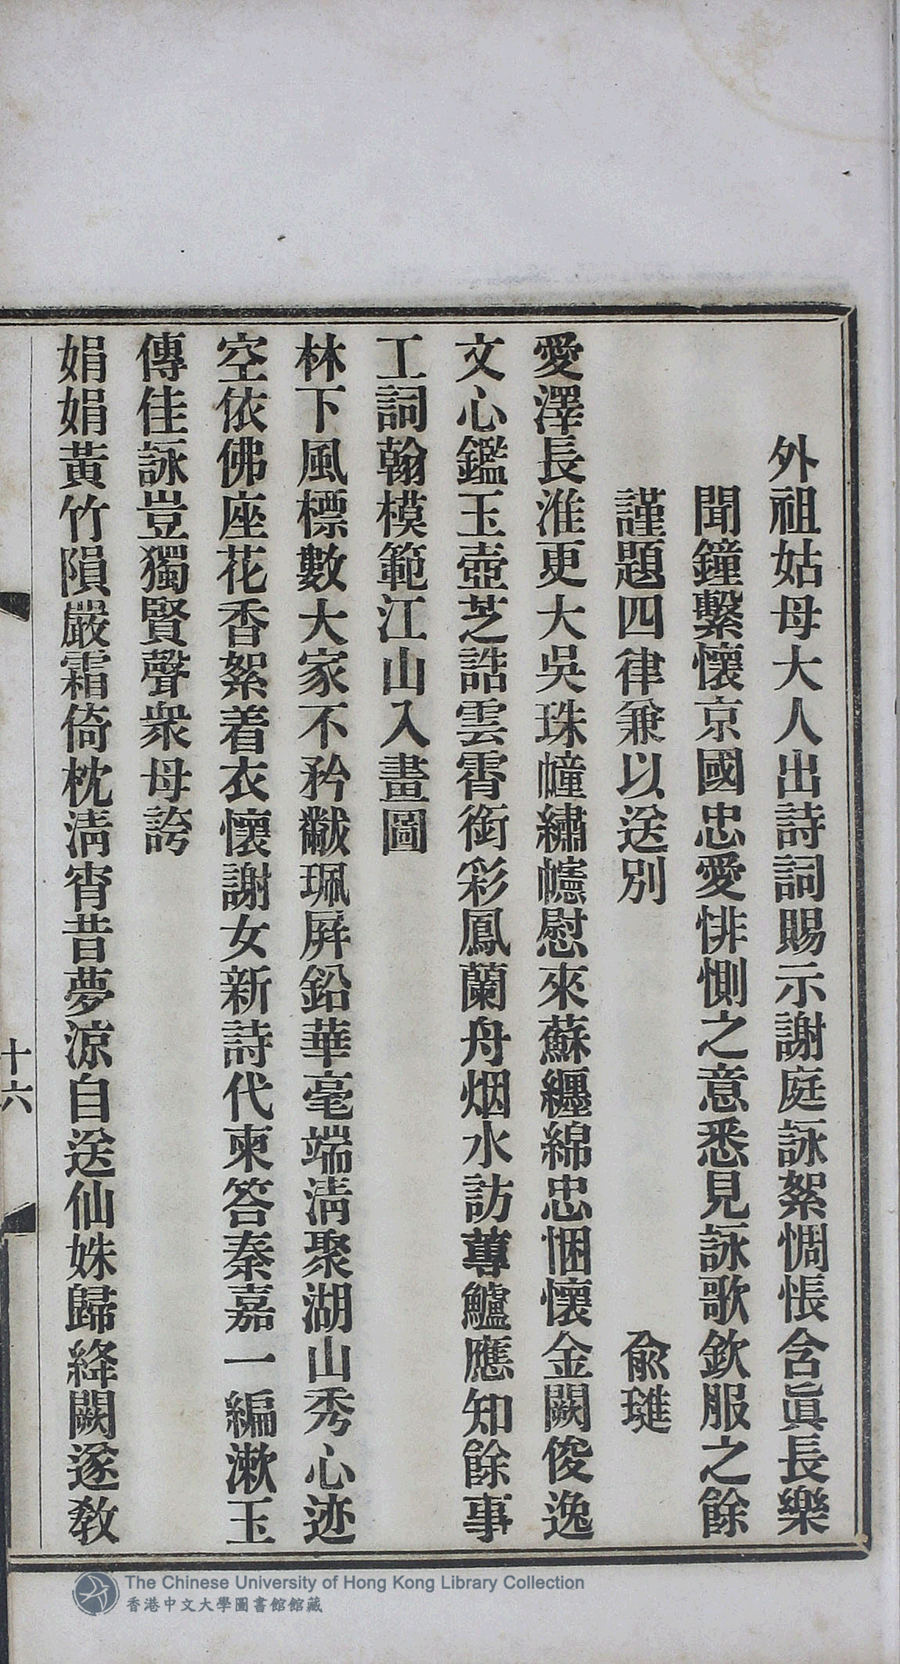 外祖姑母大人出詩詞賜示謝庭詠絮惆悵含眞長樂
聞鐘繫懷京國忠愛悱惻之意悉見詠歌欽服之餘
謹題四律兼以送別　俞璡
愛澤長淮更大吳珠幢繡幰慰來蘇纏綿忠悃懷金闕俊逸
文心鑑玉壺芝誥雲霄銜彩鳳蘭舟烟水訪蓴鱸應知餘事
工詞翰模範江山入畫圖
林下風標數大家不矜黻珮屛鉛華毫端淸聚湖山秀心迹
空依佛座花香絮着衣懷謝女新詩代柬答秦嘉一編漱玉
傳佳詠豈獨賢聲衆母誇
娟娟黃竹隕嚴霜倚枕淸宵昔夢涼自送仙姝歸絳闕遂敎
十六
The Chinese University of Hong Kong Library Collection
香港中文大學圖書館館藏